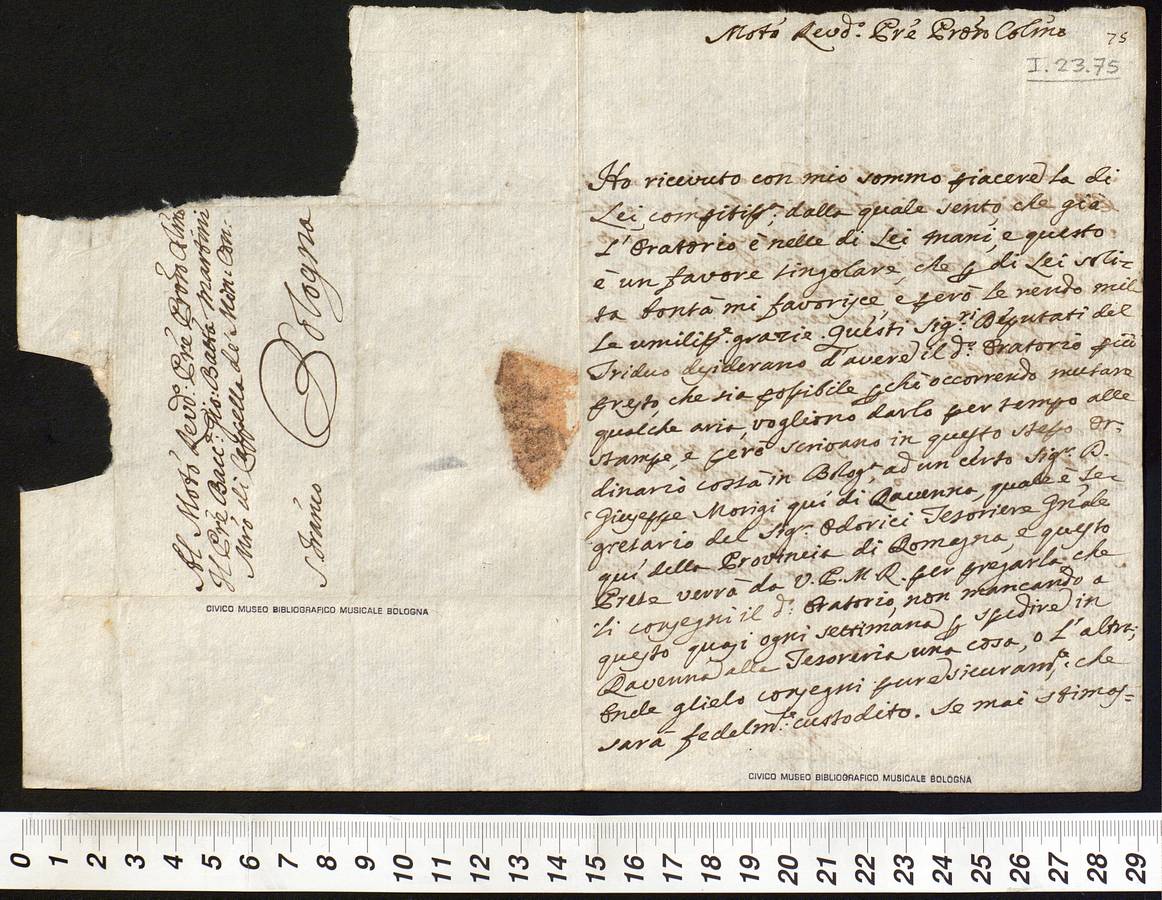 Molto Revd.o Pre Pròn Colmo
75
I. 23.75
Ho ricevuto con mio sommo piacere la di
Lei compitiss.a, dalla quale sento, che già
l'Oratorio è nelle di Lei mani, e questo
è un favore singolare, che p di Lei soli=
ta bontà mi favorisce, e però le rendo mil
le umiliss.e grazie. Questi Sig.ri Deputati del
Triduo desiderano d'avere il d.o Oratorio più
presto, che sia possibile p chè occorrendo mutare
qualche aria, vogliono darlo per tempo alle
stampe, e però scrivano in questo stesso Or=
dinario costà in Bolog.a, ad un certo Sig.r D.
Giuseppe Morigi quì di Ravenna, quale è Se=
gretario del Sig.r Odorici Tesoriere Gnãle
quì della Provincia di Romagna, e questo
Prete verrà da V.P.M.R. per pregarla, che
li consegni il d.o Oratorio, non mancando a
questo quasi ogni settimana p spedire in
Ravenna alla Tesoreria una cosa, o l'altra;
Onde glielo consegni pure sicuram.te, che
sarà fedelm.te custodito. Se mai stimas=
CIVICO MUSEO BIBLIOGRAFICO MUSICALE BOLOGNA
Al Molto Revd.o Pre Pròn Colmo
Il Pre Gio: Batta Martini
Mrõ di Cappella de Min: Con.
S. Franco Bologna
CIVICO MUSEO BIBLIOGRAFICO MUSICALE BOLOGNA
0 1 2 3 4 5 6 7 8 9 10 11 12 13 14 15 16 17 18 19 20 21 22 23 24 25 26 27 28 29